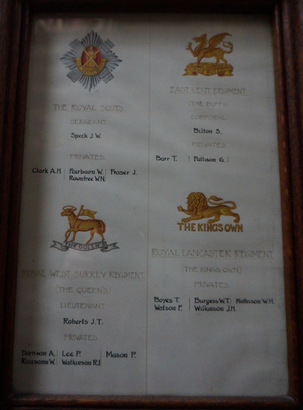 THE ROYAL SCOTS
SERGEANT
Speck J.W.
PRIVATES
Clark A.H. Fairbairn W. Fraser J.
Rowntree W.N.
EAST KENT REGIMENT
(THE BUFFS)
CORPORAL
Bilton S.
PRIVATES
Barr T. Pattison G.
ROYAL WEST SURREY REGIMENT
(THE QUEEN'S)
LIEUTENANT
Roberts J.T.
PRIVATES
Harrison A. Lee P. Mason P.
Ransome W. Watkinson R.J.
THE KING'S OWN
ROYAL LANCASTER REGIMENT
(THE KING'S OWN)
PRIVATES
Boyes T. Burgess W.T. W.H.
Watson F. Wilkinson J.H.